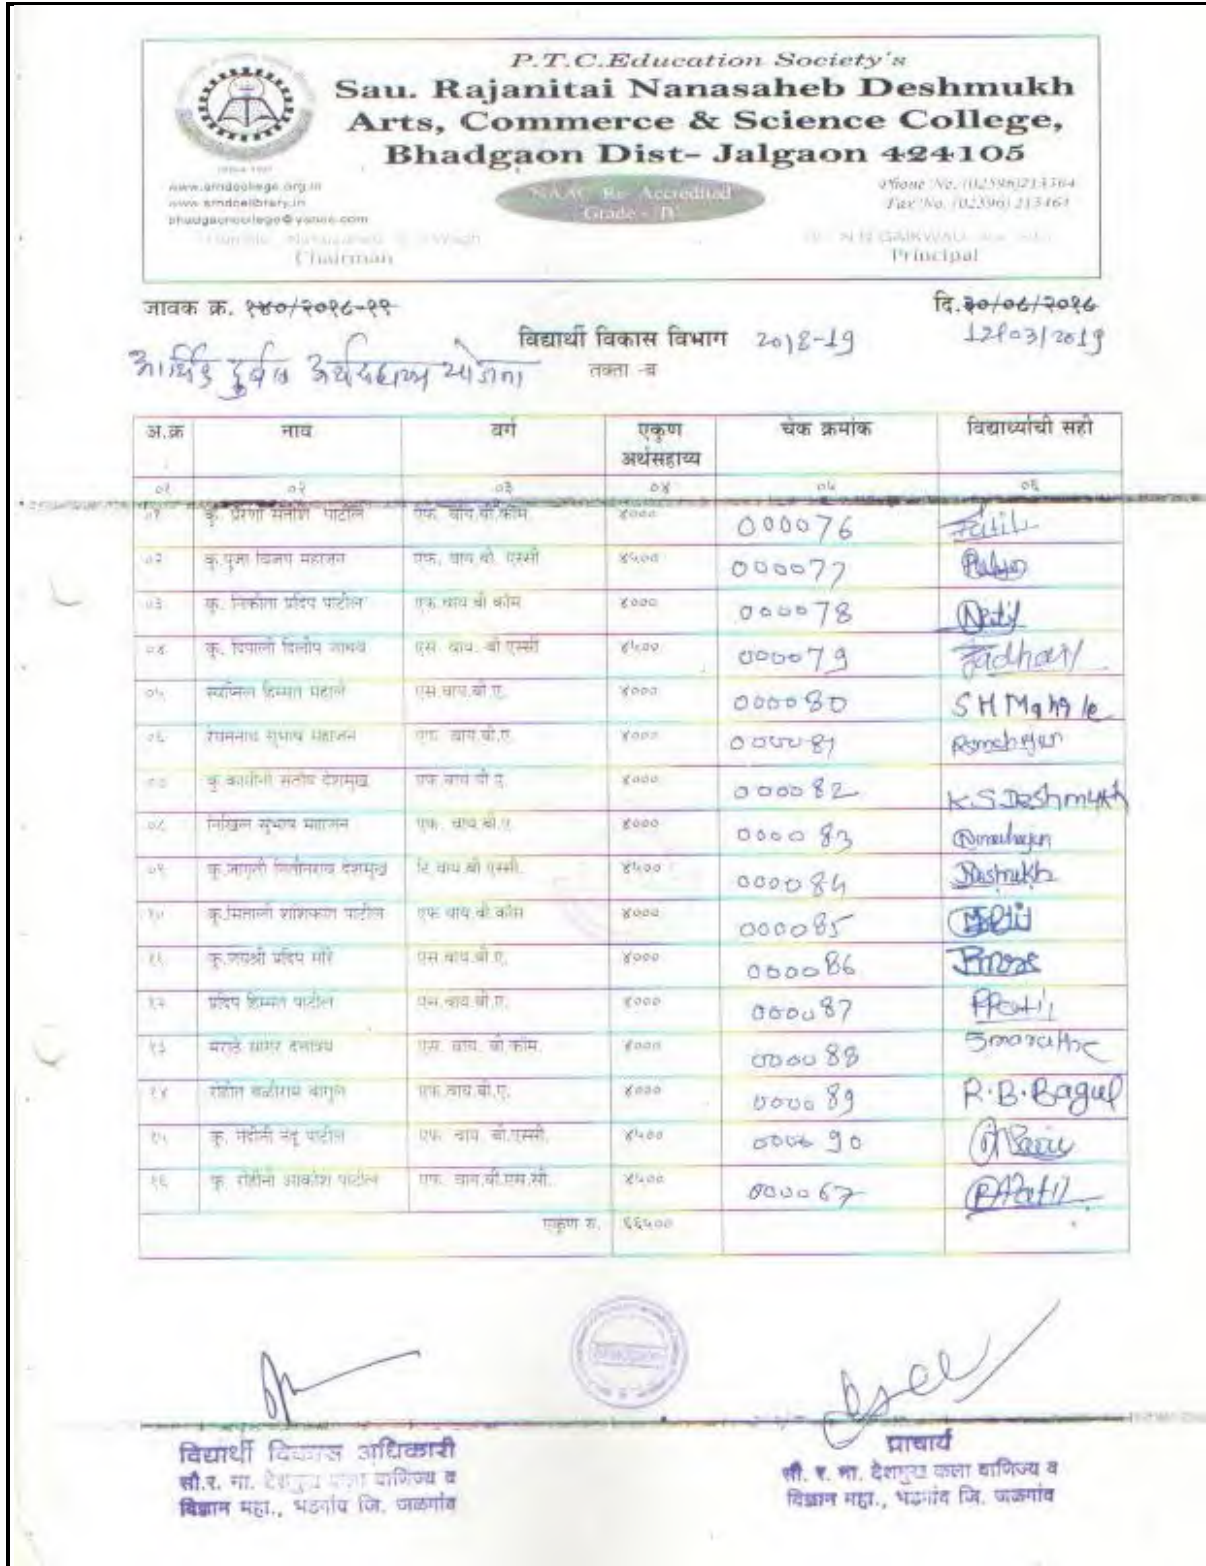 P.T.C.Education Society's
Sau. Rajanitai Nanasaheb Deshmukh
Arts, Commerce & Science College,
Bhadgaon Dist- Jalgaon 424105
NAAC Re- Accredited
Grade - 'B'
www.srndcollege.org.in
www.srndcelibrary.in
bhadgaoncollege@yahoo.com
Phone No. (02596)213364
Fax No. (02596) 213464
Chairman
N N GAIKWAD
Principal
जावक क्र. १४०/२०१८-१९
दि.३०/०८/२०१८
विद्यार्थी विकास विभाग 2018-19
12/03/2019
आर्थिक दुर्बल अर्थसहाय्य योजना
तक्ता -ब
अ.क्र नाव वर्ग एकुण अर्थसहाय्य चेक क्रमांक विद्यार्थ्यांची सही
०१ ०२ ०३ ०४ ०५ ०६
०१ कु. प्रेरणा पाटील एफ. वाय.बी.कॉम. ४००० 000076 Patil
०२ कु.पुजा विजय महाजन एफ. वाय बी. एस्सी ४५०० 000077
०३ कु. निकीता प्रदिप पाटील एफ.वाय बी कॉम ४००० 000078
०४ कु. दिपाली दिलीप जाधव एस. वाय. बी एस्सी ४५०० 000079 Jadhav
०५ स्वप्निल हिम्मत महाले एस.वाय.बी.ए. ४००० 000080 S H Mahale
०६ सुभाष महाजन एफ. वाय.बी.ए. ४००० 000081 Rsmahajan
०७ कु संतोष देशमुख एफ वाय बी ए. ४००० 000082 K.S.Deshmukh
०८ निखिल सुभाष महाजन एफ. वाय.बी.ए. ४००० 000083
०९ कु. देशमुख टि वाय.बी एस्सी. ४५०० 000084 Deshmukh
१० कु.मिताली शशिकांत पाटील एफ वाय बी.कॉम ४००० 000085
११ कु.जयश्री प्रदिप मोरे एस.वाय.बी.ए. ४००० 000086
१२ प्रदिप हिम्मत पाटील एस.वाय.बी.ए. ४००० 000087 PPatil
१३ मराठे सागर दत्तात्रय एस. वाय. बी कॉम. ४००० 000088 Smarathe
१४ रोहीत बळीराम बागुल एफ.वाय.बी.ए. ४००० 000089 R.B.Bagul
१५ कु. नंदीनी नंदू पाटील एफ. वाय. बी.एस्सी. ४५०० 000090
१६ कु. रोहीनी आकोश पाटील एफ. वाय.बी.एस.सी. ४५०० 000067 RAPatil
एकुण रु. ६६५००
Bhadgaon
विद्यार्थी विकास अधिकारी
सौ.र. ना. देशमुख कला वाणिज्य व
विज्ञान महा., भडगांव जि. जळगांव
प्राचार्य
सौ. र. ना. देशमुख कला वाणिज्य व
विज्ञान महा., भडगांव जि. जळगांव